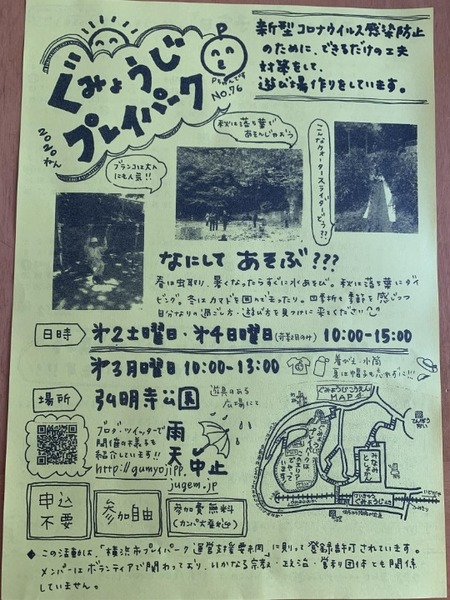 ぐみょうじ
プレイパーク
2020ねん
Pちゃんです
NO.76
新型コロナウイルス感染防止
のために、できるだけの工夫
対策をして、
遊び場作りをしています。
秋は落ち葉で
あそんじゃおう
ブランコは大人
にも人気!!
こんなウォータースライダーどう??
なにして あそぶ???
春は虫取り、暑くなったらすぐに水あそび。秋は落ち葉にダイ
ビング。冬はカマドを囲んで
四季折々季節を感じつつ
過ごし方・遊び方を見つけに来てください
日時
第2土曜日・第4日曜日 10:00-15:00
第3月曜日 10:00-13:00
着がえ・水筒
夏は帽子も忘れずに!!!
場所
弘明寺公園
遊具のある
広場にて
ブログ・ツイッターで
開催の様子を
紹介しています!!
http://gumyojipp.
jugem.jp
雨
天
中止
ぐみょうじこうえん
MAP
申込
不要
参加自由
参加費無料
(カンパ大歓迎)
◆ この活動は、「横浜市プレイパーク運営支援要綱」に則って登録許可されています。
メンバーはボランティアで関わっており、いかなる宗教・政治・営利団体とも関係
していません。